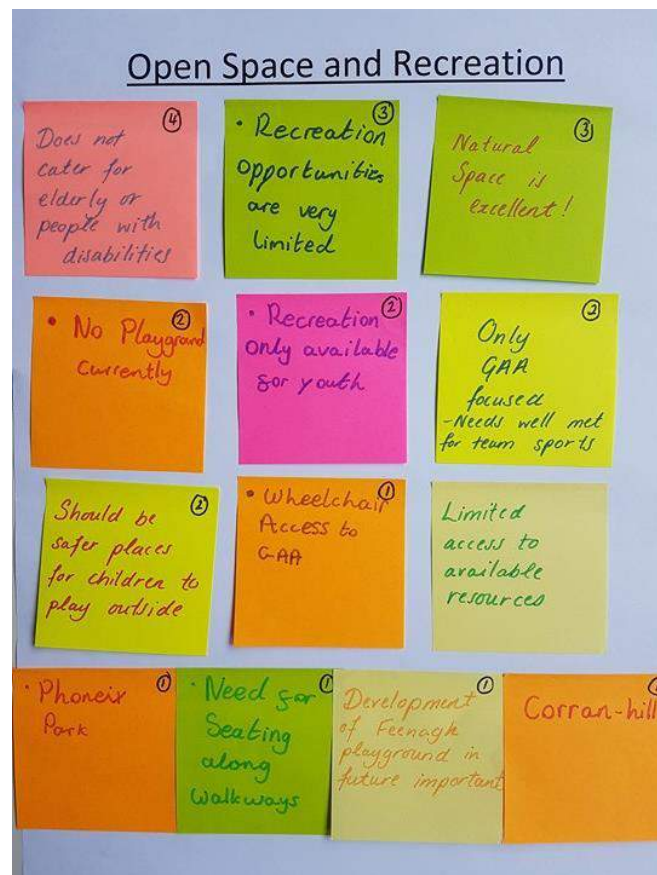 Open Space and Recreation
④
Does not
cater for
elderly or
people with
disabilities
③
• Recreation
opportunities
are very
Limited
③
Natural
Space is
excellent!
②
• No Playground
Currently
②
• Recreation
only available
for youth
②
Only
GAA
focused
-Needs well met
for team sports
②
Should be
safer places
for children to
play outside
①
• Wheelchair
Access to
GAA
Limited
access to
available
resources
①
• Phoneix
Park
①
• Need for
Seating
along
walkways
①
Development
of Feenagh
playground in
future important
Corran-hill